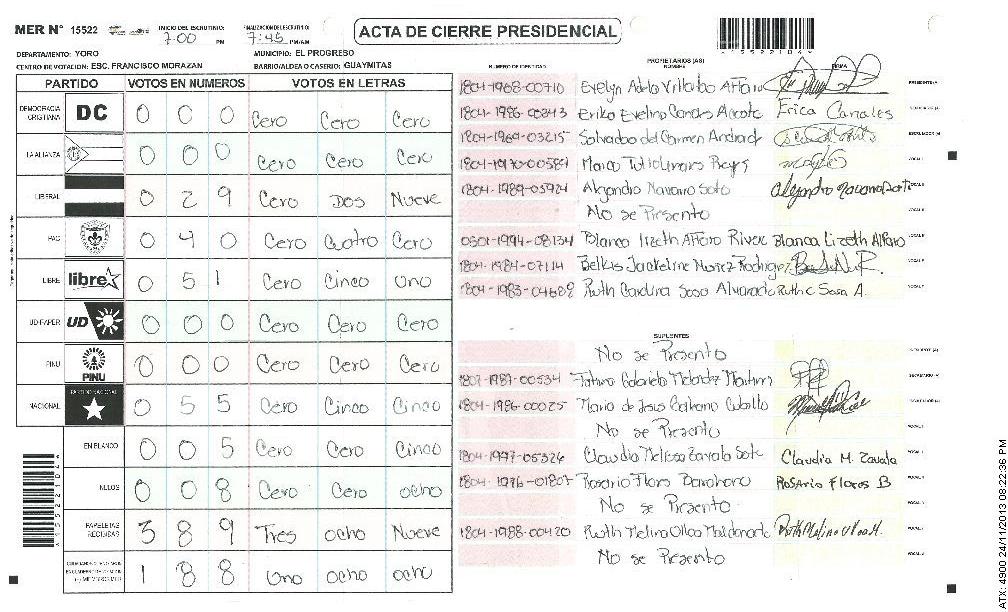 MER N° 15522
INICIO DEL ESCRUTINIO: 7:00 PM
FINALIZACION DEL ESCRUTINIO: 7:45 PM/AM
ACTA DE CIERRE PRESIDENCIAL
DEPARTAMENTO: YORO
MUNICIPIO: EL PROGRESO
CENTRO DE VOTACION: ESC. FRANCISCO MORAZAN
BARRIO/ALDEA O CASERIO: GUAYMITAS
PARTIDO VOTOS EN NUMEROS VOTOS EN LETRAS
DEMOCRACIA CRISTIANA DC 0 0 0 Cero Cero Cero
LA ALIANZA 0 0 0 Cero Cero Cero
LIBERAL 0 2 9 Cero Dos Nueve
PAC 0 4 0 Cero Cuatro Cero
LIBRE libre 0 5 1 Cero Cinco Uno
UD FAPER UD 0 0 0 Cero Cero Cero
PINU PINU 0 0 0 Cero Cero Cero
NACIONAL PARTIDO NACIONAL 0 5 5 Cero Cinco Cinco
EN BLANCO 0 0 5 Cero Cero Cinco
NULOS 0 0 8 Cero Cero ocho
PAPELETAS RECIBIDAS 3 8 9 Tres ocho Nueve
1 8 8 Uno ocho ocho
PROPIETARIOS (AS)
NUMERO DE IDENTIDAD NOMBRE FIRMA
1804-1968-00710 Evelyn Adela Villalobo Alfaro
1804-1986-00243 Erika Evelina Canales Erica Canales
1804-1969-03215 Salvador del Carmen Andrad
1804-1970-00589 Marco Tulio Reyes
1804-1989-05924 Alejandro Navarro Soto Alejandro
No se Presento
0501-1994-08134 Blanca Lizeth Alfaro River Blanca Lizeth Alfaro
1804-1984-07114 Belkis Jackeline Nuñez Rodrigez
1804-1983-04689 Ruth Carolina Sosa Alvarado Ruth C Sosa A.
SUPLENTES
No se Presento
1807-1987-00534 Fatima Gabriela Melendez Martinez
1804-1986-00025 Maria de Jesus Caballo
No se Presento
1804-1997-05326 Claudia Melissa Zavala Sote Claudia M. Zavala
1804-1976-01807 Rosario Flores Rosario Flores B
No se Presento
1804-1988-00420 Ruth Melina Ulloa Maldonado Ruth Melina Ulloa M.
No se Presento
ATX: 4900 24/11/2013 08:22:36 PM